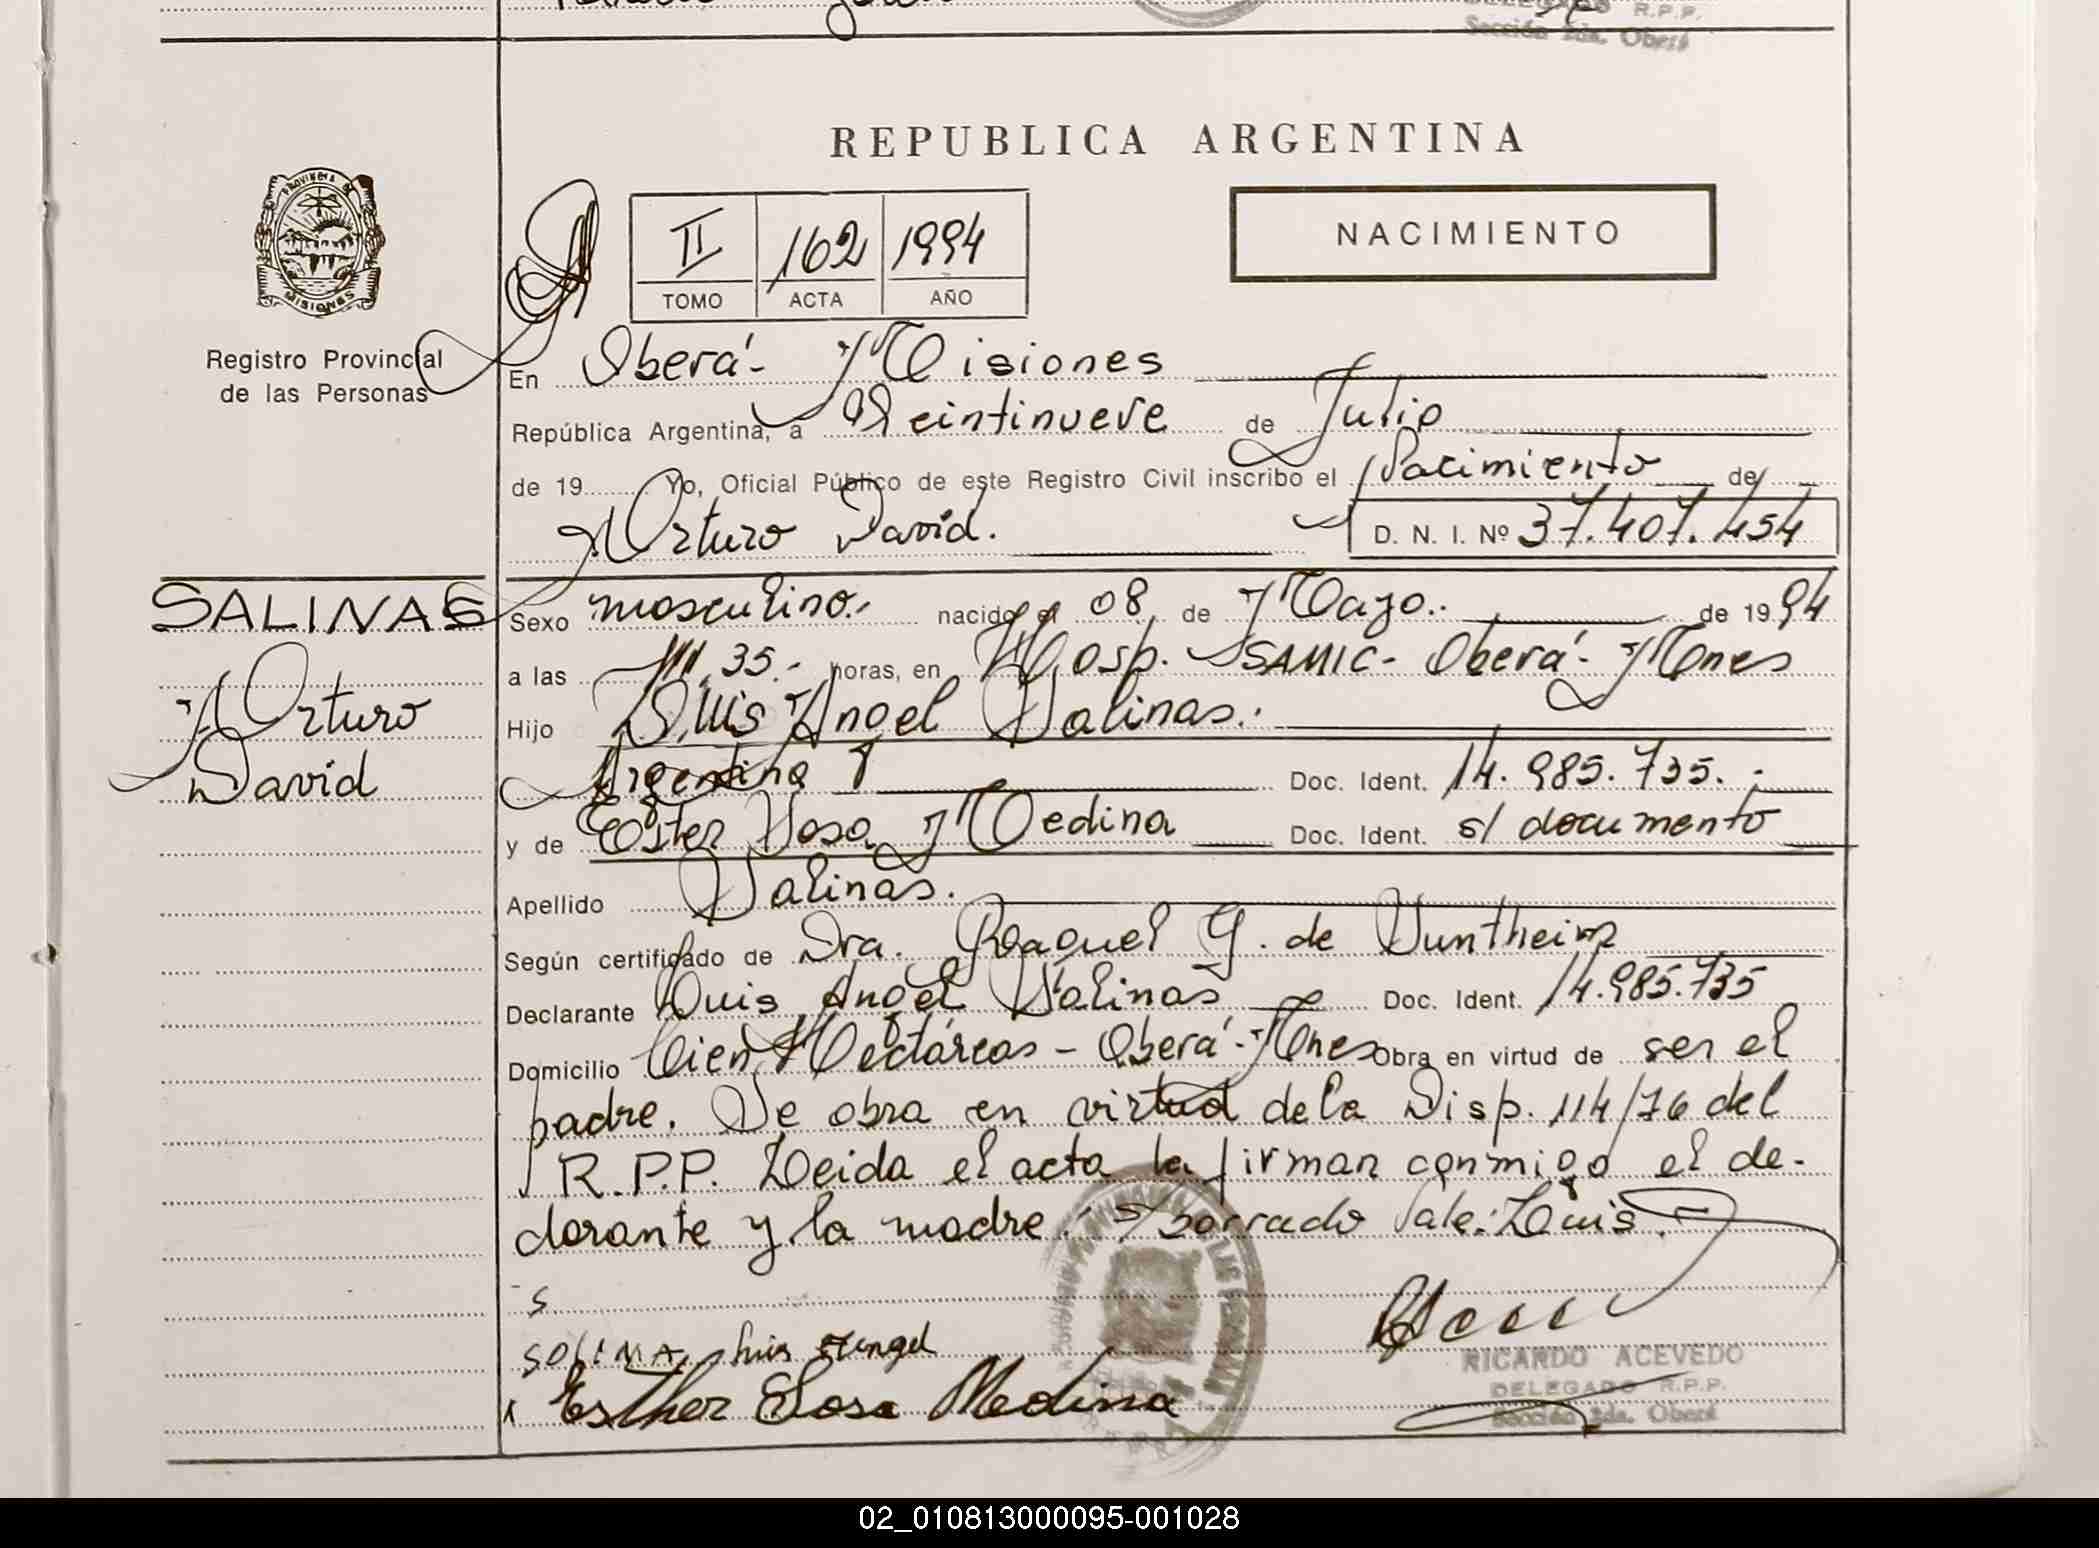 R.P.P.
Sección 2da. Oberá
REPUBLICA ARGENTINA
PROVINCIA DE MISIONES
NACIMIENTO
II 162 1994
TOMO ACTA AÑO
Registro Provincial
de las Personas
En Oberá - Misiones
República Argentina, a Veintinueve de Julio
de 19........ Yo, Oficial Público de este Registro Civil inscribo el Nacimiento de
Arturo David.
D. N. I. Nº 37.407.454
SALINAS
Arturo
David
Sexo masculino.- nacido el 08 de Mayo.. de 1994
a las 35.- horas, en Hosp. SAMIC - Oberá - Mnes
Hijo Luis Angel Salinas.-
Argentina Doc. Ident. 14.985.735.-
y de Ester Sosa Medina Doc. Ident. s/ documento
Apellido Salinas.
Según certificado de Dra. Raquel G. de
Declarante Luis Angel Salinas Doc. Ident. 14.985.735
Domicilio Cien Hectáreas - Oberá - Mnes Obra en virtud de ser el
padre. Se obra en virtud de la Disp. 114/76 del
R.P.P. Leida el acta la firman conmigo el de-
clarante y la madre.- s/borrado Vale: Luis.-
S
SOLINA Luis Angel
x Esther Sosa Medina
RICARDO ACEVEDO
DELEGADO R.P.P.
Sección 2da. Oberá
02_010813000095-001028